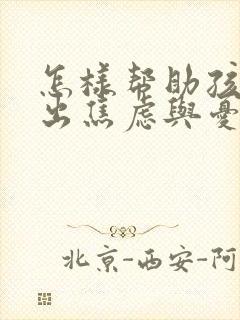 怎樣帮助孩
出焦虑與憂
北京-西安-阿